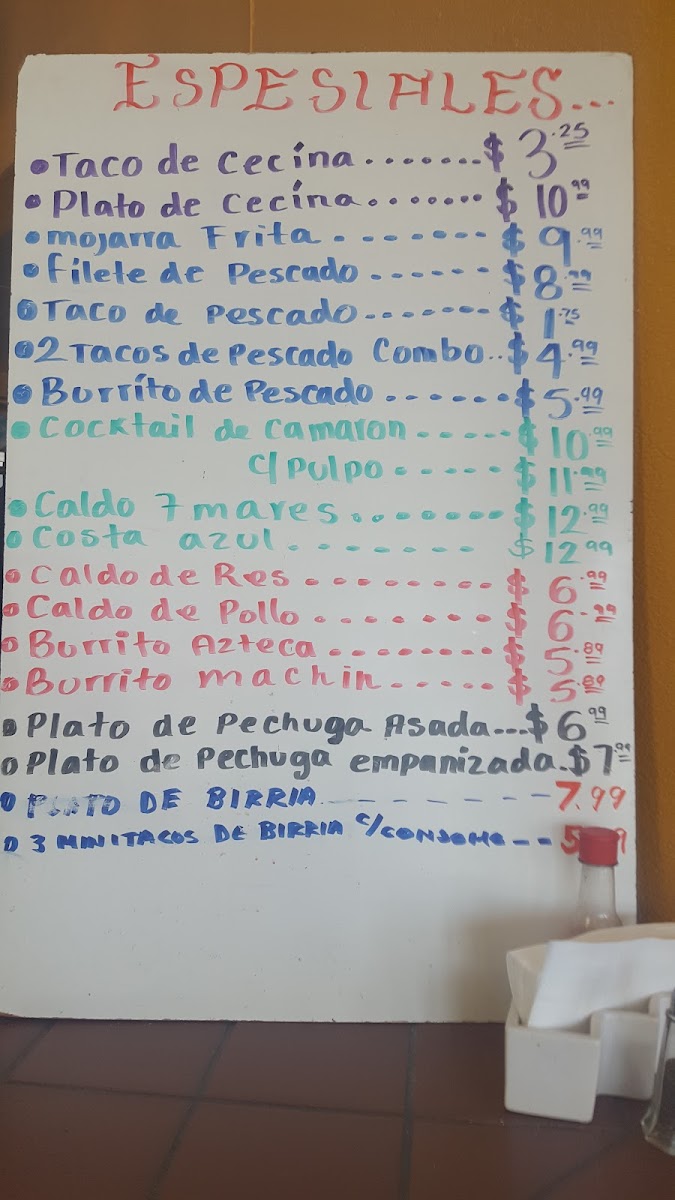 ESPESIALES...
• Taco de cecina........$ 3.25
• Plato de cecina........$ 10.99
• mojarra Frita........$ 9.99
• filete de Pescado......$ 8.99
• Taco de Pescado........$ 1.75
• 2 Tacos de Pescado Combo..$ 4.99
• Burrito de Pescado.......$ 5.99
• Cocktail de camaron.....$ 10.99
c/Pulpo.....$ 11.99
• Caldo 7 mares........$ 12.99
• Costa azul.......$ 12 99
• Caldo de Res.........$ 6.99
• Caldo de Pollo.......$ 6.99
• Burrito Azteca.........$ 5.89
• Burrito machin.....$ 5.89
• Plato de Pechuga Asada...$ 6 99
• Plato de Pechuga empanizada.$ 7.99
• PLATO DE BIRRIA.-------7.99
• 3 MINITACOS DE BIRRIA C/CONSOME--